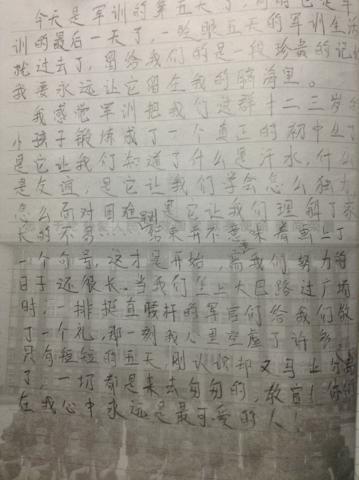 今天是军训的第五天了,
训的最后一天了,一眨眼五天的军训生活
就过去了,留给我们的是一段珍贵的记
我要永远让它留在我的脑海里。
我感觉军训把我们这群十二三岁
小孩子锻炼成了一个真正的初中生了
是它让我们知道了什么是汗水,什么
是友谊,是它让我们学会怎么独力
怎么面对困难,是它让我们理解了家
长的不易 结束并不意味着画上了
一个句号,这才是开始,需我们努力的
日子还很长。当我们坐上大巴路过广场
时,一排挺直腰杆的军官们给我们敬
了一个礼,那一刻我心里空虚了许多,
只有短短的五天,刚认识却又马上分离
了,一切都是来去匆匆的,教官!你们
在我心中永远是最可爱的人